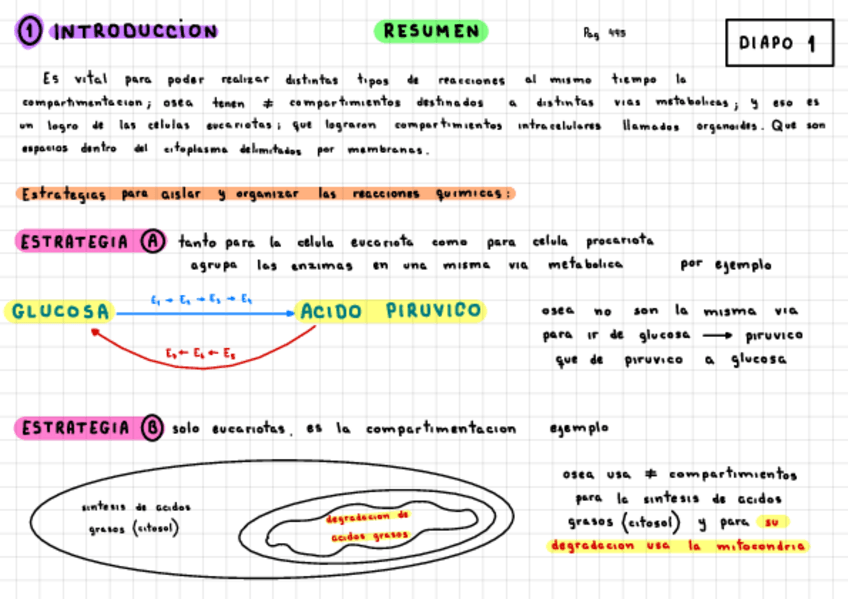 1 INTRODUCCION
RESUMEN
Pag 495
DIAPO 1
Es vital para poder realizar distintas tipos de reacciones al mismo tiempo la
compartimentacion; osea tenen ≠ compartimientos destinados a distintas vias metabolicas; y eso es
un logro de las celulas eucariotas; que lograron compartimientos intracelulares llamados organoides. Que son
espacios dentro del citoplasma delimitados por membranas.
Estrategias para aislar y organizar las reacciones quimicas:
ESTRATEGIA A tanto para la celula eucariota como para celula procariota
agrupa las enzimas en una misma via metabolica por ejemplo
E₁ → E₂ → E₃ → E₄
GLUCOSA → ACIDO PIRUVICO
E₇ ← E₆ ← E₅
osea no son la misma via
para ir de glucosa → piruvico
que de piruvico a glucosa
ESTRATEGIA B solo eucariotas, es la compartimentacion ejemplo
sintesis de acidos
grasos (citosol)
degradacion de
acidos grasos
osea usa ≠ compartimientos
para la sintesis de acidos
grasos (citosol) y para su
degradacion usa la mitocondria